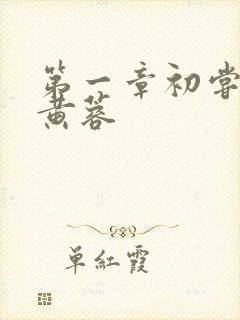 第一章初嘗
黄蓉
单紅霞